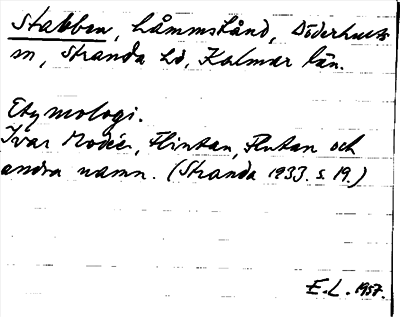 Stabben, Låmmskånd, Döderhults
sn, Stranda hd, Kalmar län.
Etymologi.
Ivar Modéer, Flintan, Flutan och
andra namn. (Stranda 1933. s. 19.)
E.L. 1957.